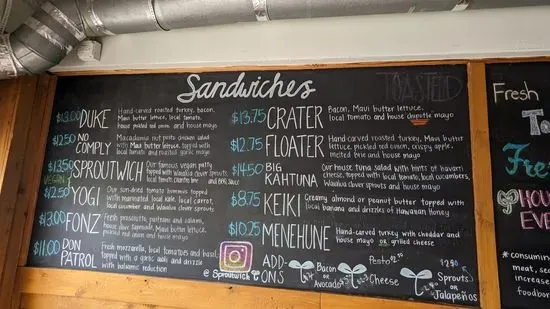 Sandwiches
TOASTED
$13.00 DUKE Hand-carved roasted turkey, bacon,
Maui butter lettuce, local tomato,
house pickled red onion and house mayo
$12.50 NO COMPLY Macadamia nut pesto chicken salad
with Maui butter lettuce, topped with
local tomato and roasted garlic mayo
$13.50 SPROUTWICH Our famous vegan patty
topped with Waialua clover sprouts,
local tomato and BBQ sauce
VEGAN
$12.50 YOGI Our sun-dried tomato hummus topped
with marinated local kale, local carrot,
local cucumber and Waialua clover sprouts
$13.00 FONZ Fresh prosciutto, pastrami and salami,
house Maui butter lettuce,
pickled red onion and house mayo
$11.00 DON PATROL Fresh mozzarella, local tomatoes and basil
topped with a garlic aioli and drizzle
with balsamic reduction
$13.75 CRATER Bacon, Maui butter lettuce,
local tomato and house chipotle mayo
$12.75 FLOATER Hand-carved roasted turkey, Maui butter
lettuce, pickled onion, crispy apple,
melted brie and house mayo
$14.50 BIG KAHTUNA Our house tuna salad with hints of
cheese, topped with local tomato, local cucumbers,
Waialua clover sprouts and house mayo
$8.75 KEIKI Creamy almond or peanut butter topped with
local banana and drizzles of Hawaiian Honey
$10.25 MENEHUNE Hand-carved turkey with cheddar and
house mayo or grilled cheese
@Sproutwich
ADD-ONS
Bacon or Avocado
Pesto $2.50
Cheese
$2.00
Sprouts or Jalapeños
Fresh
Fre
HOUS
EVE
*consuming
meat, se
increase
foodbor